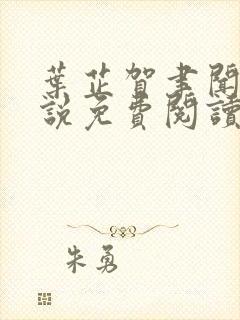 葉芷賀書聞
說免費閱讀
朱勇